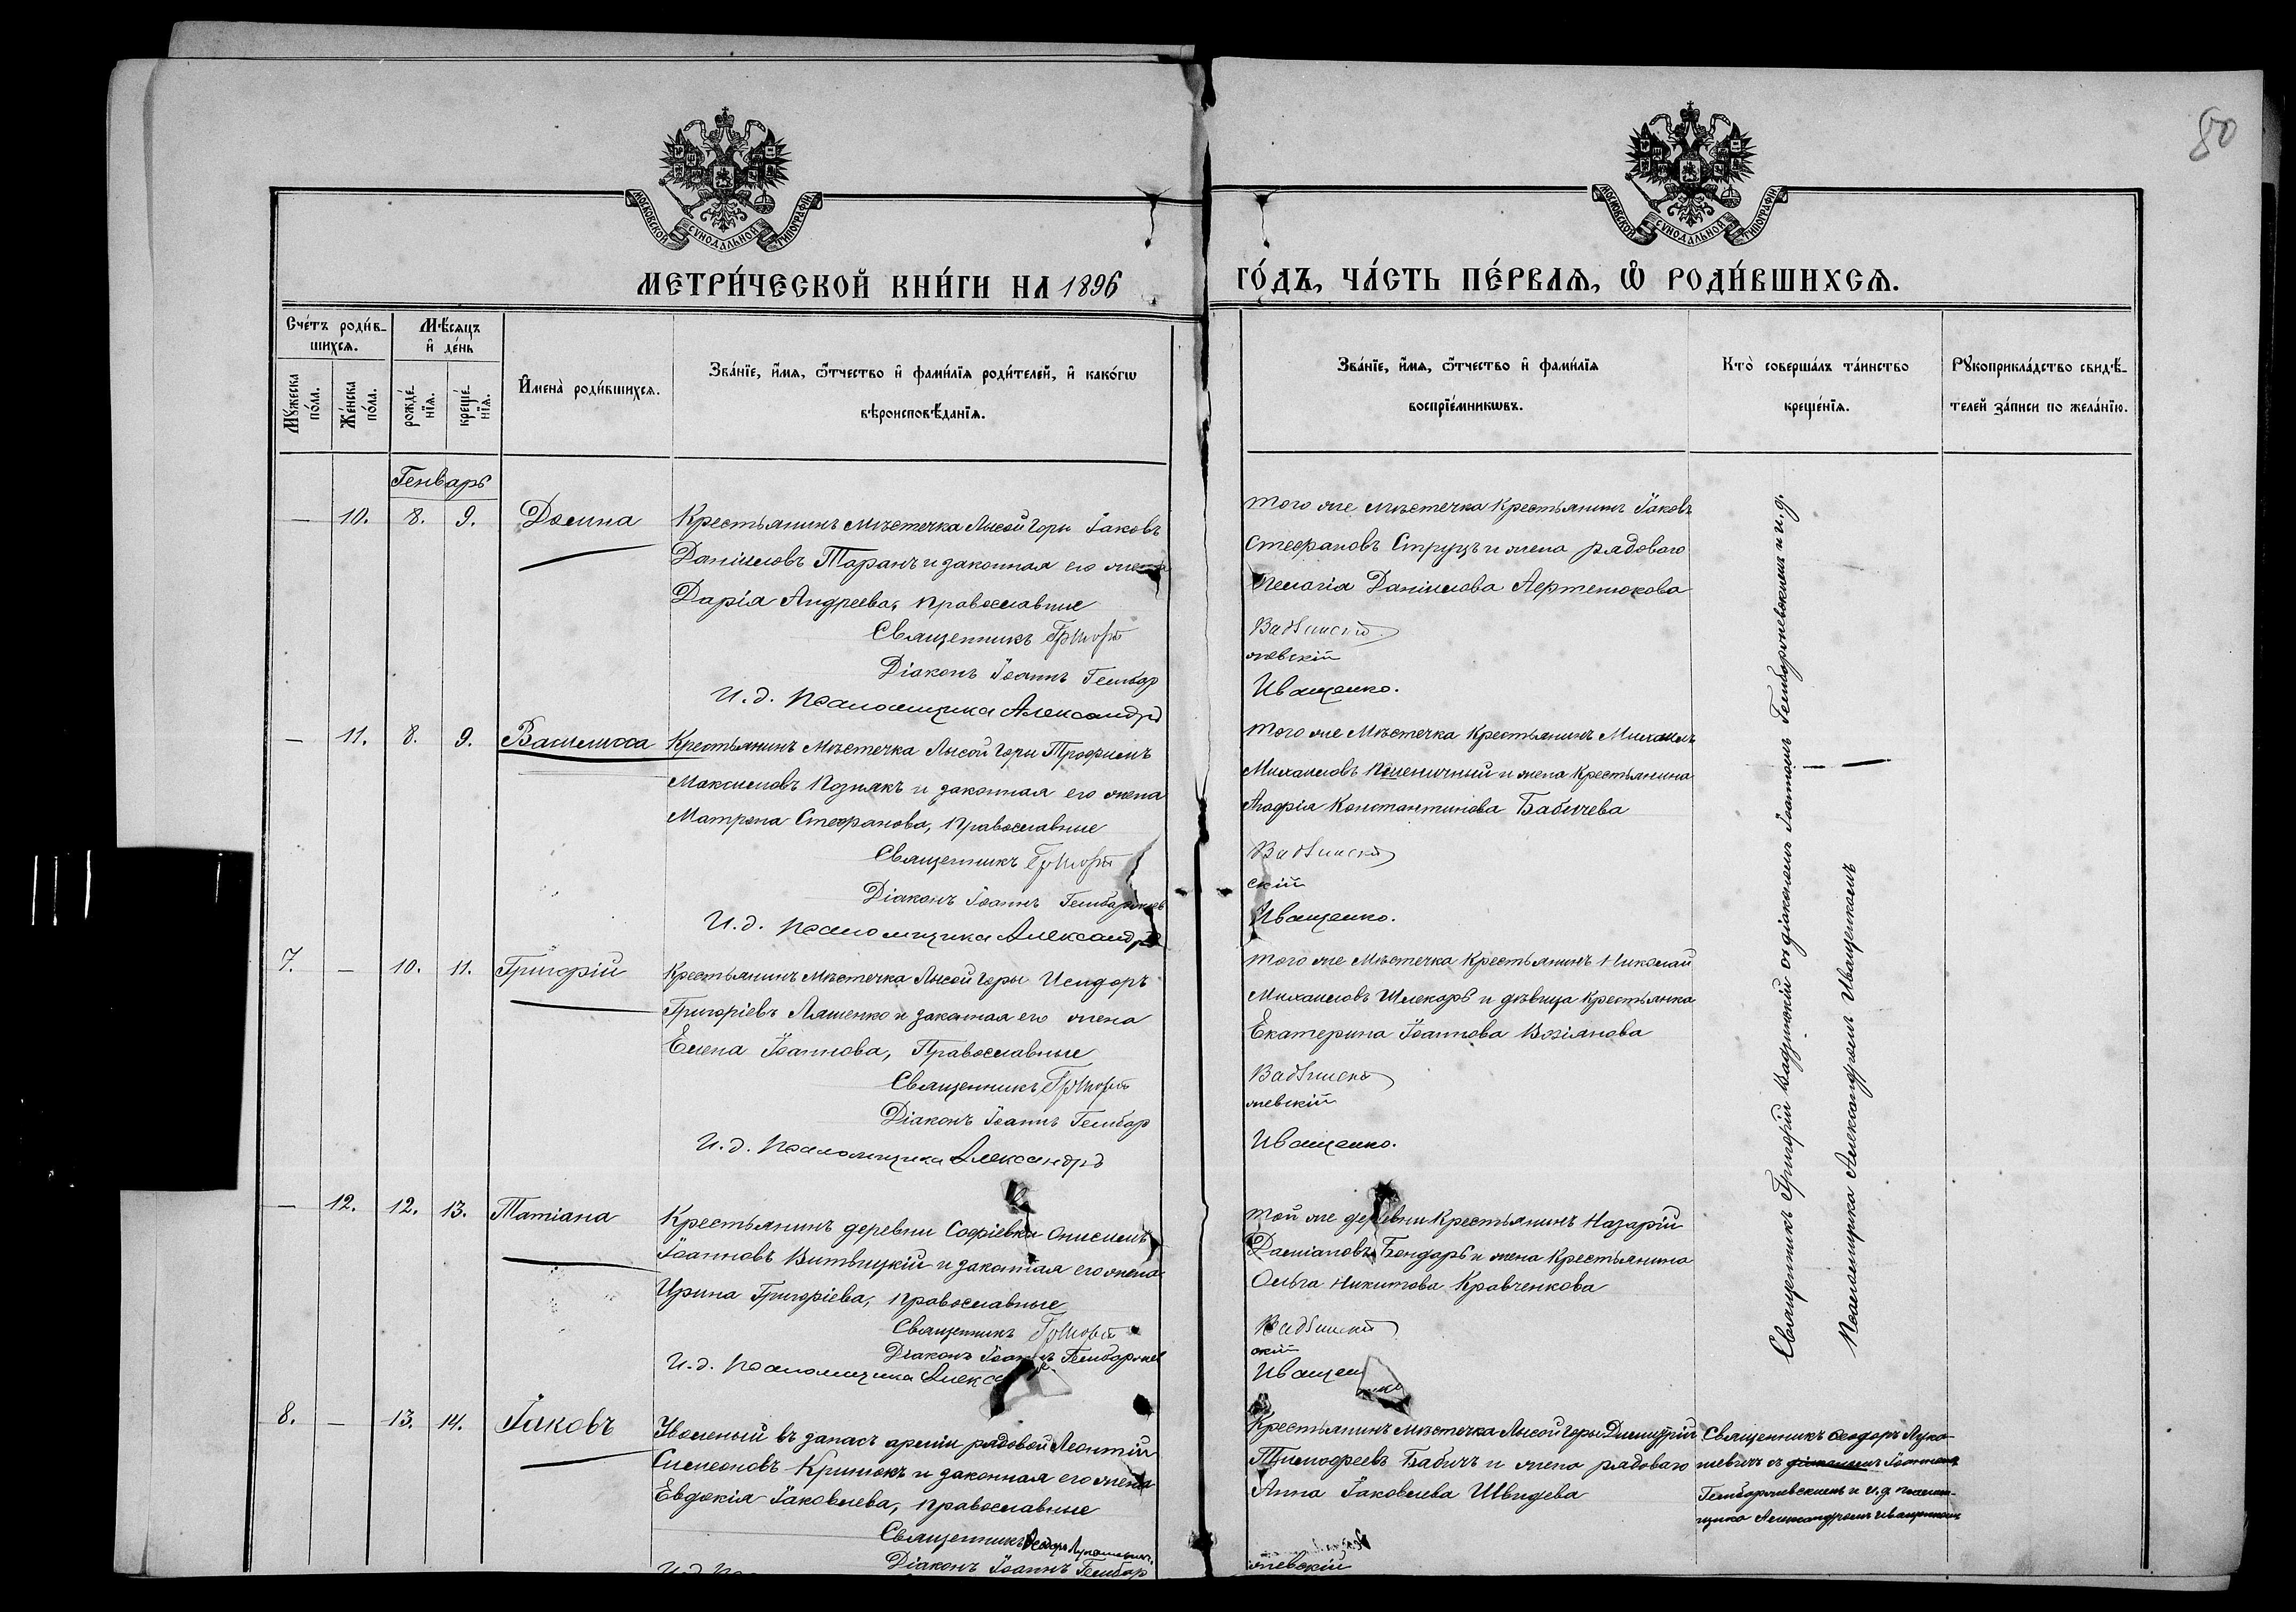 80
МОСКОВСКОЙ СѴНОДАЛЬНОЙ ТИПОГРАФІИ
МОСКОВСКОЙ СѴНОДАЛЬНОЙ ТИПОГРАФІИ
МЕТРИ́ЧЕСКОЙ КНИ́ГИ НА 1896 ГО́ДЪ, ЧА́СТЬ ПЕ́РВАѦ, Ѡ РОДИ́ВШИХСѦ.
Сче́тъ роди́в-
шихсѧ.
Мѣ́сѧцъ
и҆ де́нь
Мꙋ́жеска
по́ла.
Же́нска
по́ла.
рожде́-
нїѧ.
креще́-
нїѧ.
И҆мена̀ роди́вшихсѧ.
Зва́нїе, и҆́мѧ, ѻ҆́тчество и҆ фами́лїѧ роди́телей, и҆ како́гѡ
вѣроисповѣ́данїѧ.
Зва́нїе, и҆́мѧ, ѻ҆́тчество и҆ фами́лїѧ
воспрїе́мникѡвъ.
Кто̀ соверша́лъ та́инство
креще́нїѧ.
Рꙋкоприкла́дство свидѣ́-
телей за́писи по жела́нїю.
Генварь
— 10. 8. 9. Домна
Крестьянинъ мѣстечка Лысой Горы Іаковъ
Даніиловъ Таранъ и законная его жена
Дарія Андреева, православные
Священникъ Григорій
Діаконъ Іоаннъ Гембар
И. д. Псаломщика Александръ
того же мѣстечка Крестьянинъ Іаковъ
Стефановъ Струцъ и жена рядоваго
Пелагія Даніилова
Вадзинскій
жевскій
Иващенко.
— 11. 8. 9. Василисса
Крестьянинъ Мѣстечка Лысой Горы Трофимъ
Максимовъ Познякъ и законная его жена
Матрона Стефанова, православные
Священникъ Григорій
Діаконъ Іоаннъ Гембаржев
И. д. Псаломщика Александръ
того же Мѣстечка Крестьянинъ Михаилъ
Михаиловъ Пшеничный и жена Крестьянина
Агафія Константинова Бабичева
Вадзинскій
скій
Иващенко.
7. — 10. 11. Григорій
Крестьянинъ Мѣстечка Лысой Горы Исидоръ
Григоріевъ Ляшенко и законная его жена
Елена Іоаннова, Православные
Священникъ Григорій
Діаконъ Іоаннъ Гембар
И. д. Псаломщика Александръ
того же Мѣстечка Крестьянинъ Николай
Михаиловъ Шлекарь и дѣвица Крестьянка
Екатерина Іоаннова
Вадзинскій
жевскій
Иващенко.
— 12. 12. 13. Татіана
Крестьянинъ деревни Софіевки Онисимъ
Іоанновъ Витвицкій и законная его жена
Ирина Григоріева, православные
Священникъ Григорій
Діаконъ Іоаннъ Гембаржев
И. д. Псаломщика
той же деревни Крестьянинъ Назарій
Даміановъ Бондарь и жена Крестьянина
Ольга Никитова Кравченкова
Вадзинскій
скій
Иващенко
Священникъ Григорій Вадзинскій съ діакономъ Іоанномъ Гембаржевскимъ и и. д.
Псаломщика Александромъ Иващенкомъ
8. — 13. 14. Іаковъ
Уволеный въ запасъ арміи рядовой Леонтій
Симеоновъ Кришокъ и законная его жена
Евдокія Іаковлева, православные
Священникъ Ѳеодоръ Лукашевичъ
Діаконъ Іоаннъ Гембар
Крестьянинъ мѣстечка Лысой Горы Димитрій
Тимофеевъ Бабичъ и жена рядоваго
Анна Іаковлева Швидева
жевскій
Священникъ Ѳеодоръ Лука-
шевичъ съ діакономъ Іоанномъ
Гембаржевскимъ и и. д. псалом-
щика Александромъ Иващенкомъ